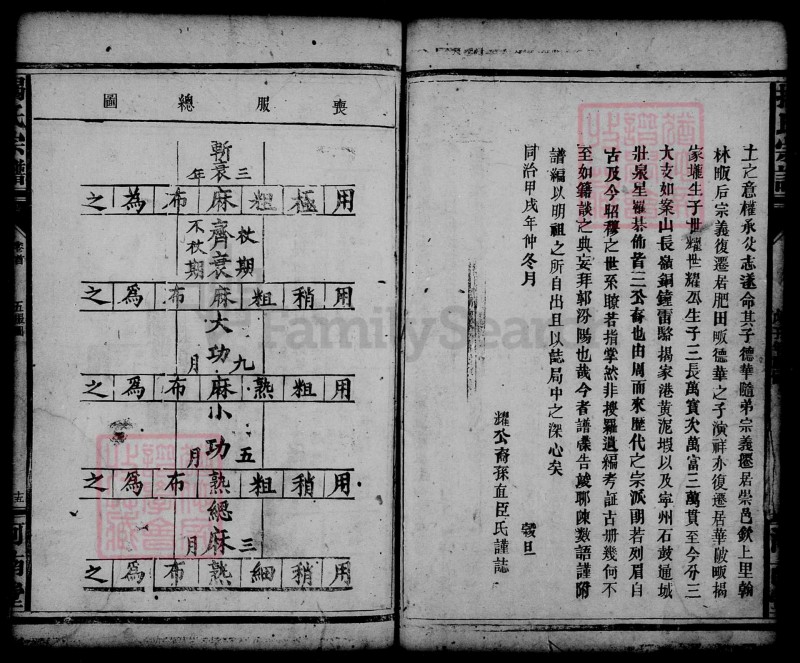 士之意權承父志遂命其子德華隨弟宗義遷居崇邑欽上里翰
林畈后宗義復遷居肥田畈德華之子演祥亦復遷居華陂畈揭
家壠生子世耀世耀公生子三長萬寳次萬富三萬貫至今分三
大支如案山長嶺銅鐘雷駱揭家港黄泥塅以及寧州石鼓通城
壯泉星羅棊佈皆三公裔也由周而來歷代之宗派朗若列眉自
古及今昭穆之世系瞭若指掌然非搜羅遺編考証古册幾何不
至如籍談之典妄拜郭汾陽也哉今者譜牒告竣聊陳数語謹附
譜編以明祖之所自出且以誌局中之深心矣
同治甲戌年仲冬月 穀旦
耀公裔孫直臣氏謹誌
喪服總圖
斬衰三年
用極粗麻布為之
齊衰杖期不杖期
用稍粗麻布為之
大功九月
用粗熟麻布為之
小功五月
用稍粗熟布為之
緦麻三月
用稍細熟布為之
揭氏宗譜
卷首
五服圖
河南堂
FamilySearch